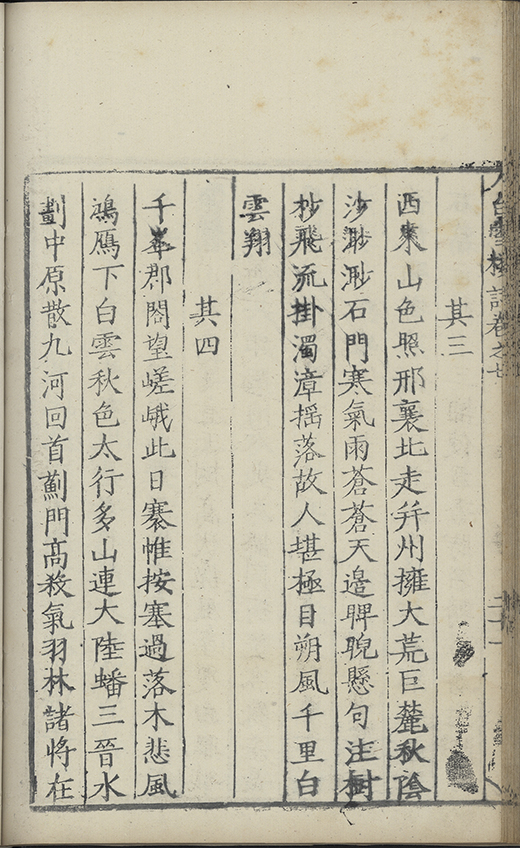 白雪樓詩卷之七
其三
西來山色照邢襄北走并州擁大荒巨麓秋陰
沙渺渺石門寒氣雨蒼蒼天邊睥睨懸句注樹
杪飛流掛濁漳搖落故人堪極目朔風千里白
雲翔
其四
千峯郡閣望嵯峨此日褰帷按塞過落木悲風
鴻鴈下白雲秋色太行多山連大陸蟠三晉水
劃中原散九河回首薊門高殺氣羽林諸將在